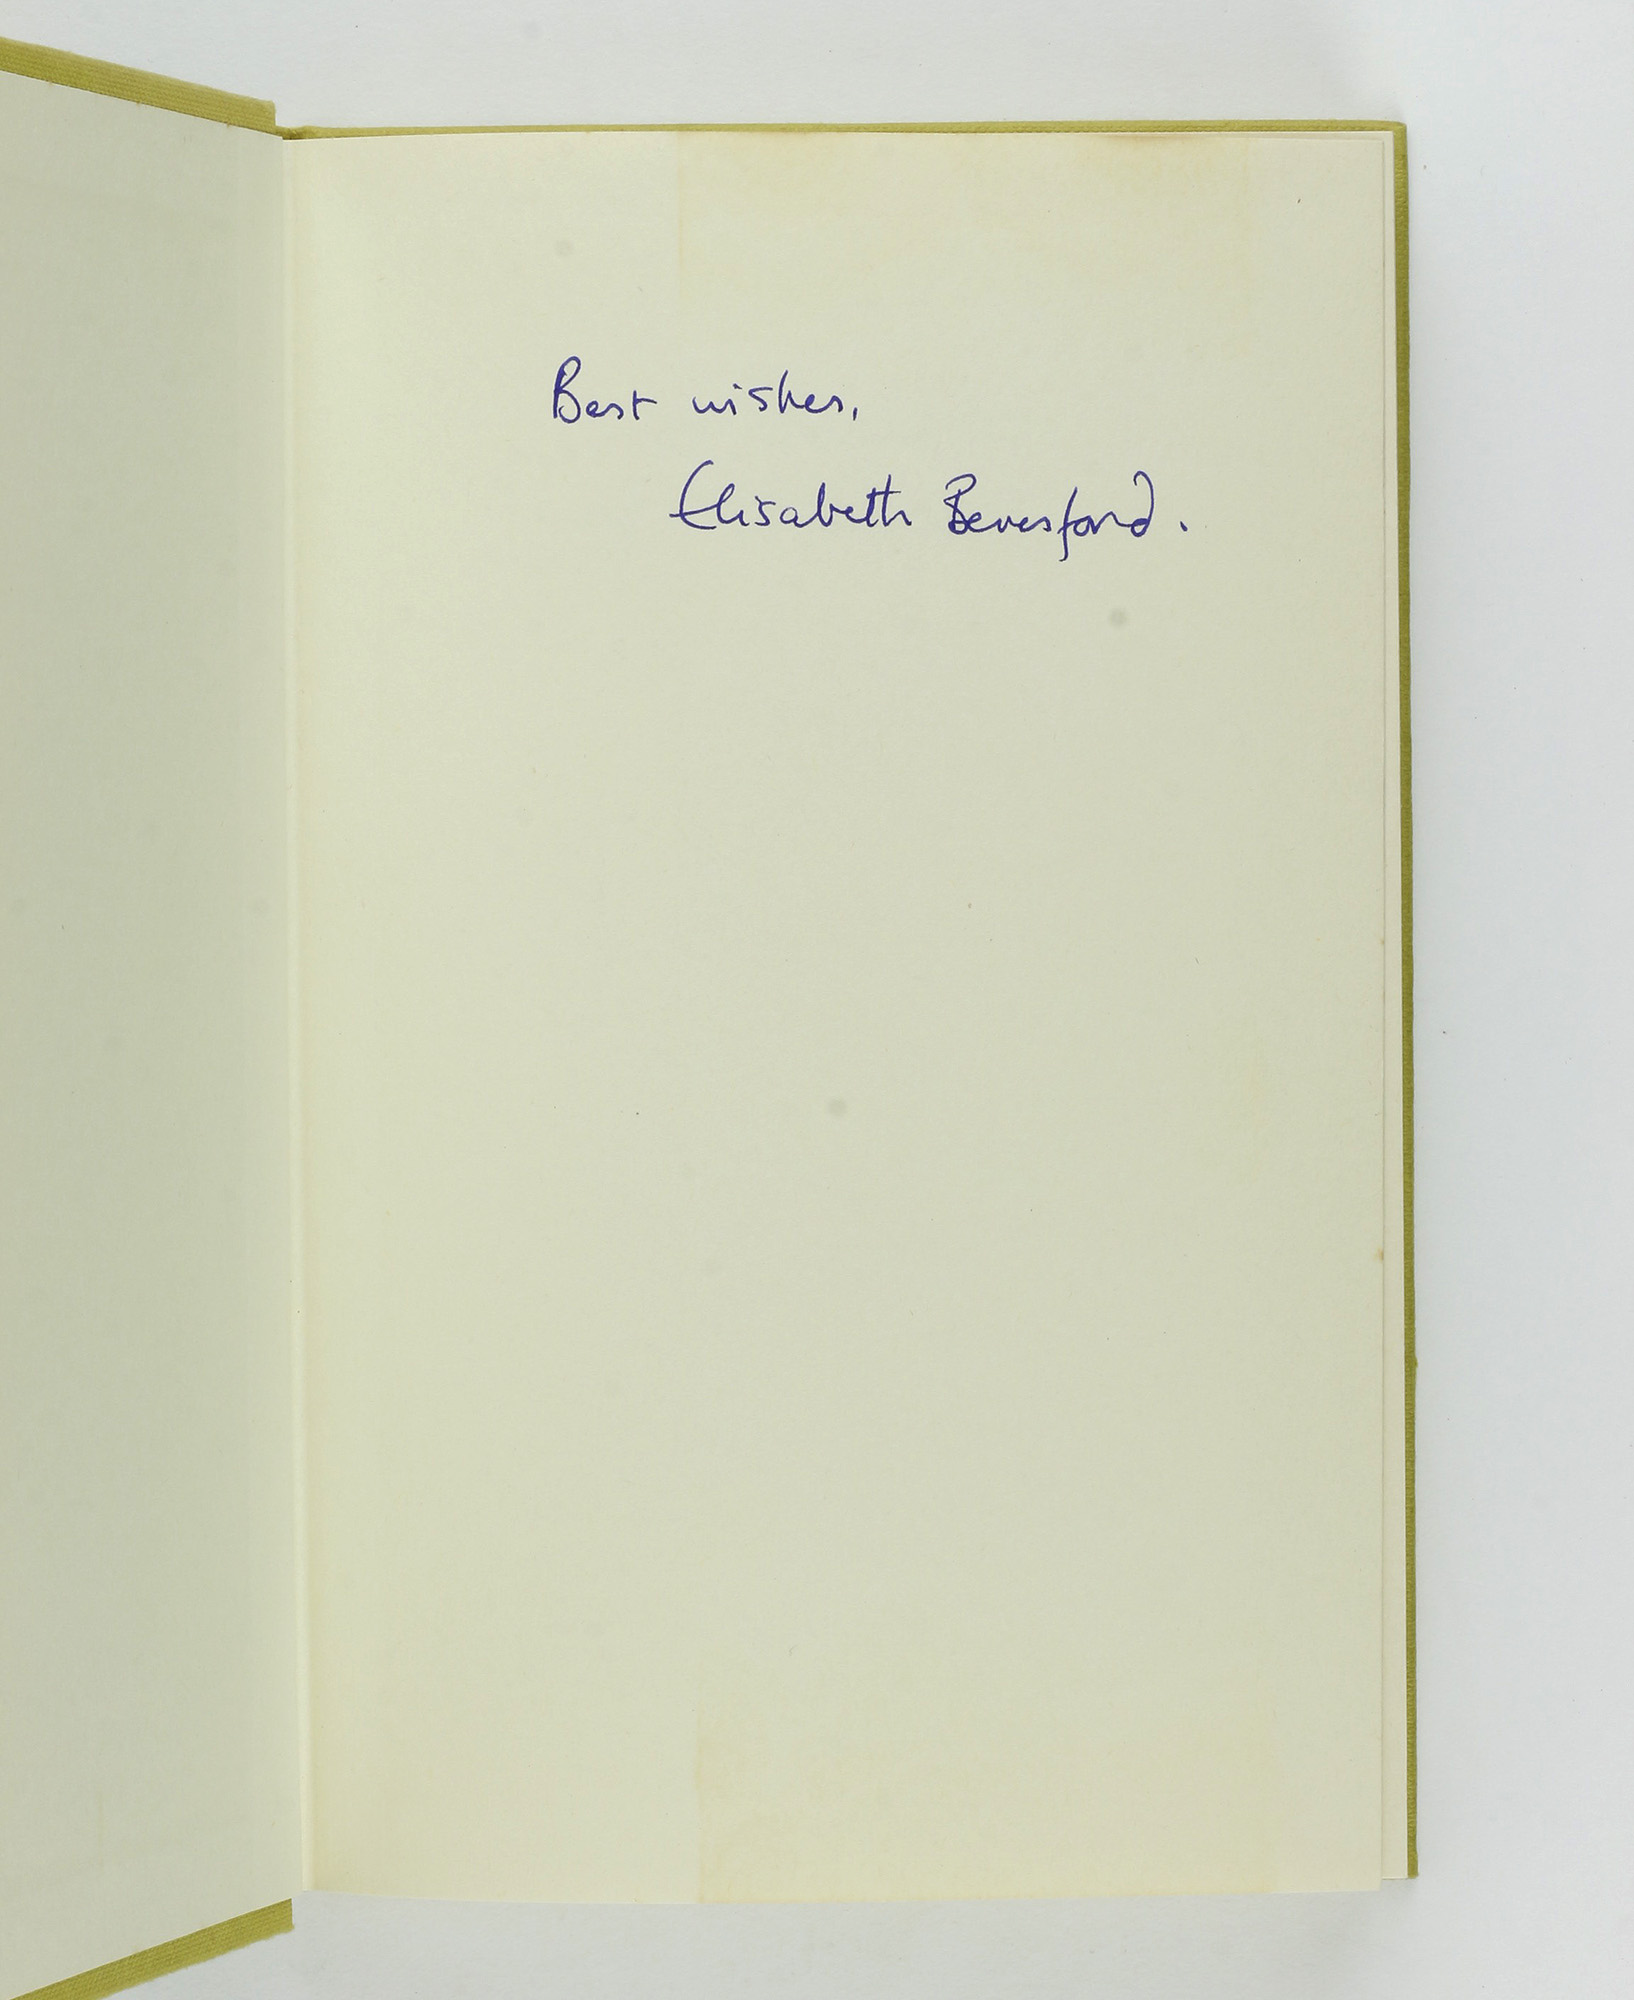 Best wishes,
Elisabeth Beresford.